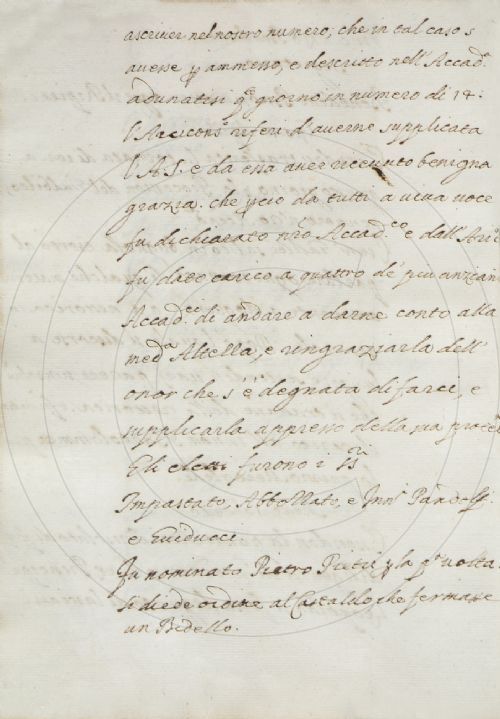 ascriver nel nostro numero, che in tal caso s
avesse p ammesso, e descritto nell' Accad.ª
adunatisi q.º giorno in numero di 14:
l'Arcicons.º riferì d'averne supplicata
l'A.S. e da essa aver ricevuto benigna
grazia. che pciò da tutti a viva voce
fu dichiarato nr̃o Accad.co e dall' Aric
fu dato carico a quattro de' più anzian
Accad.ci di andare a darne conto alla
med.ª Altezza, e ringraziarla dell'
onor che s'è degnata di farci, e
supplicarla appresso della sua protez
E li eletti furono i SSri
Impastato, Abbollato, e Inn.
e Guiducci.
Fu nominato Pietro Pitti p la pª volta.
Si diede ordine al Castaldo che fermasse
un Bidello.